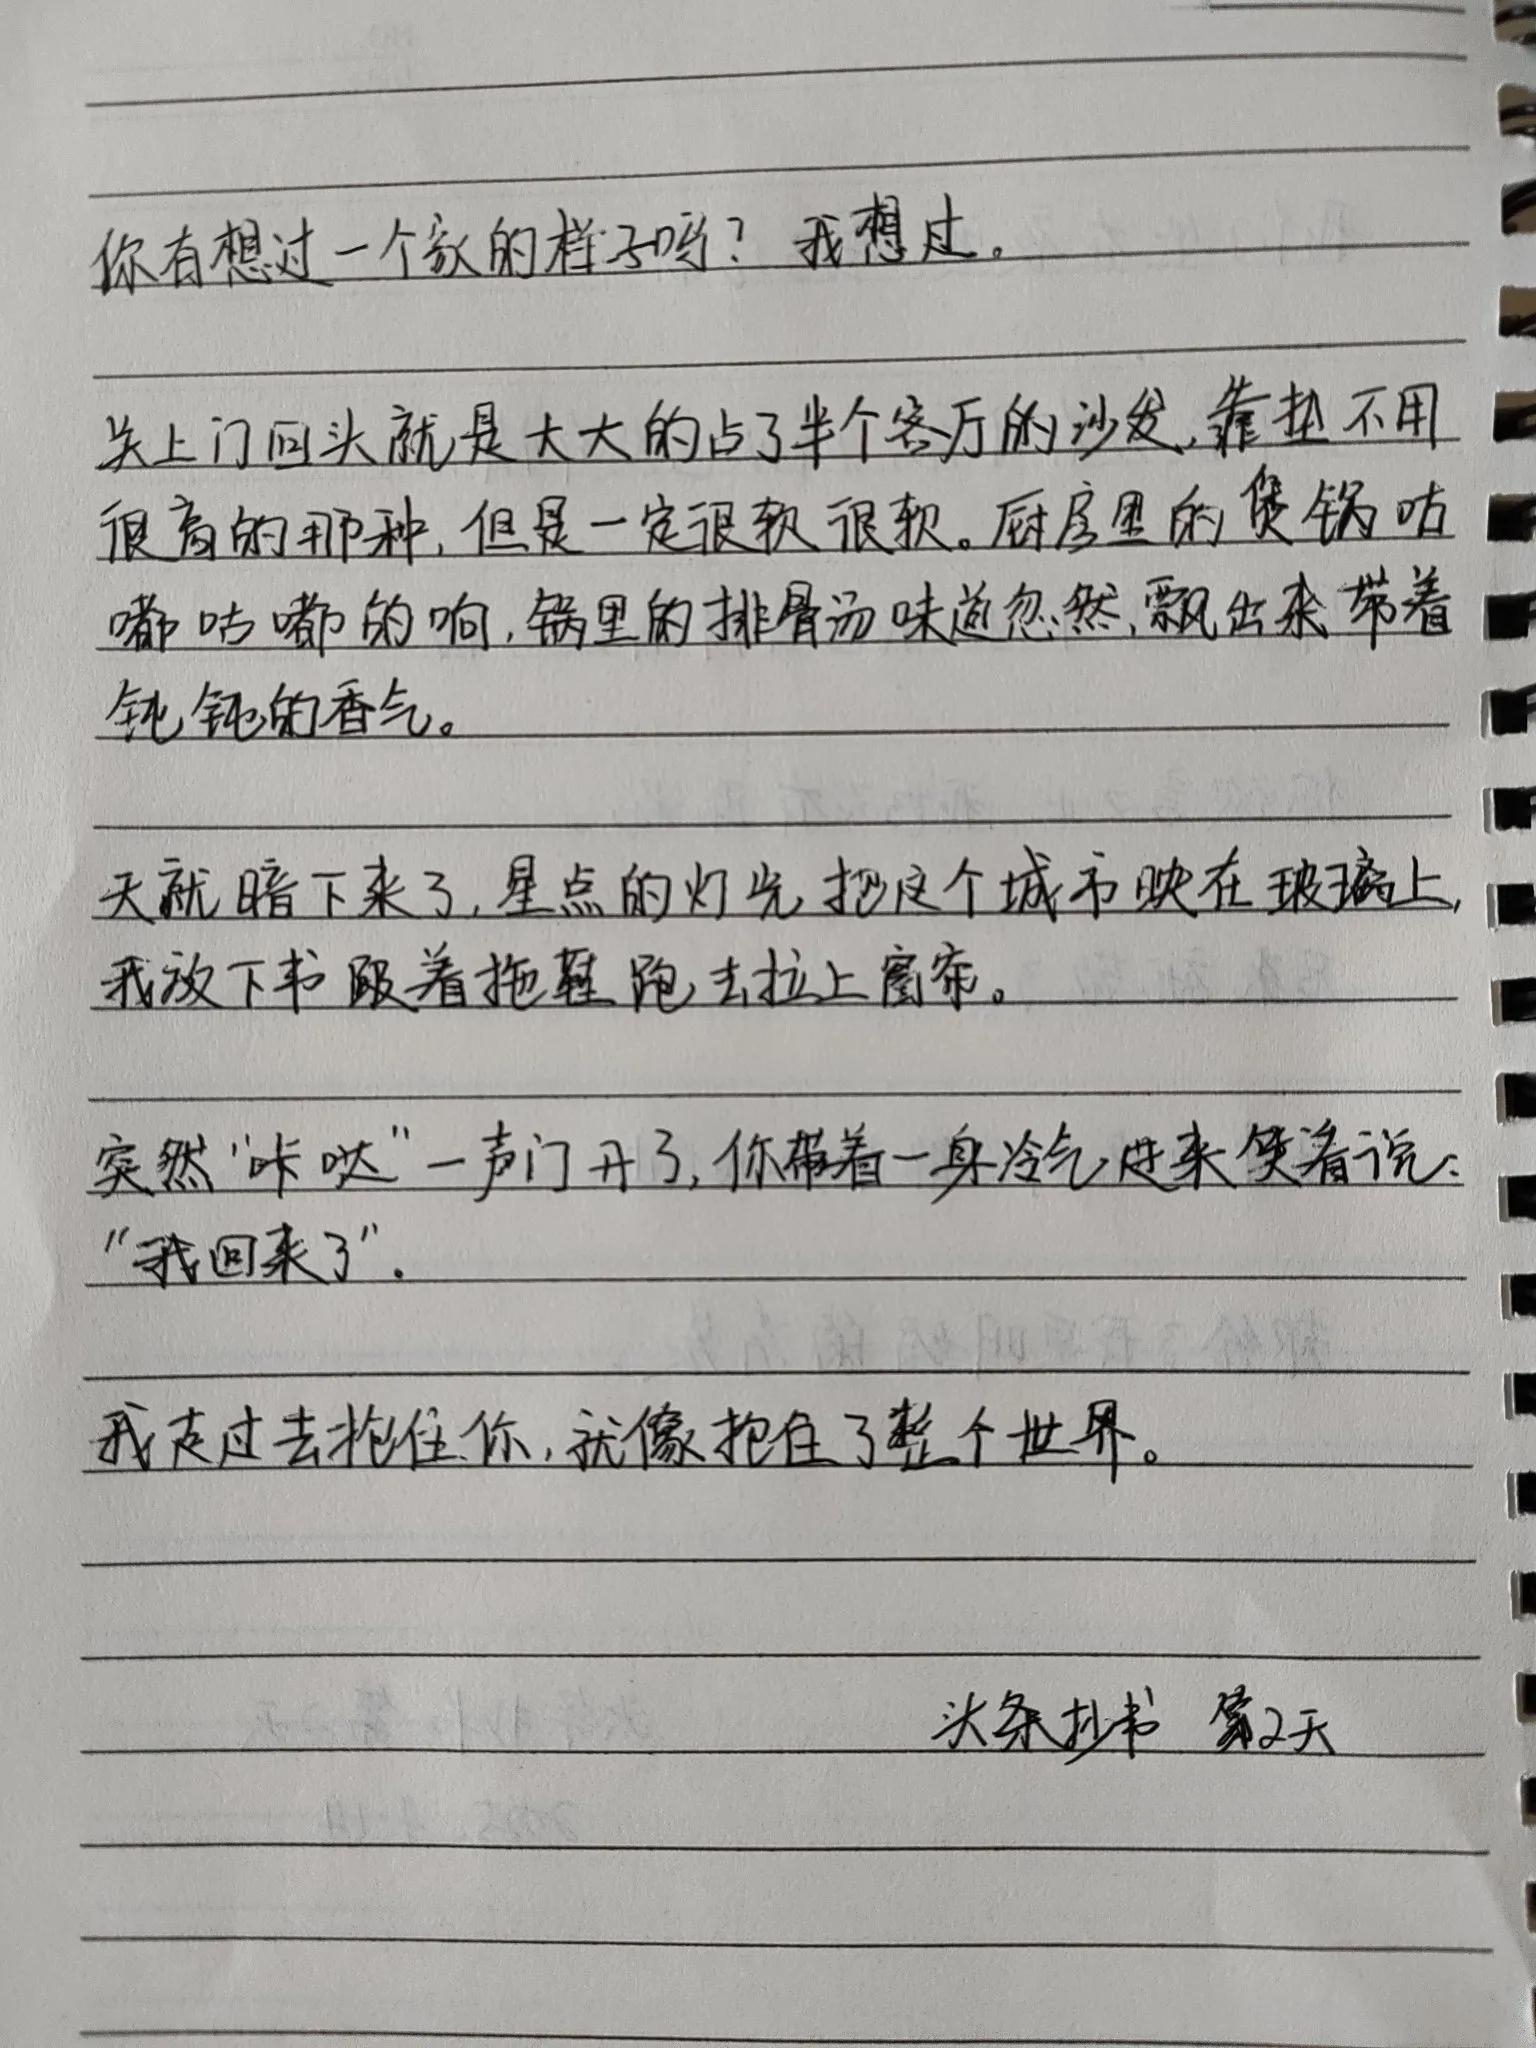 你有想过一个家的样子吗？我想过。
关上门回头就是大大的占了半个客厅的沙发，靠垫不用
很高的那种，但是一定很软很软。厨房里的煲锅咕
嘟咕嘟的响，锅里的排骨汤味道忽然，飘出来带着
钝钝的香气。
天就暗下来了，星点的灯光把这个城市映在玻璃上，
我放下书趿着拖鞋跑去拉上窗帘。
突然“咔哒”一声门开了，你带着一身冷气进来笑着说：
“我回来了”.
我走过去抱住你，就像抱住了整个世界。
头条抄书 第2天